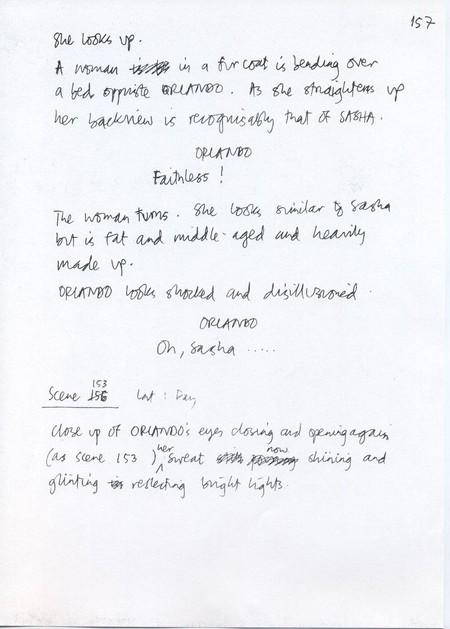 157
She looks up.
A woman in a fur coat is bending over
a bed opposite ORLANDO. As she straightens up
her backview is recognisably that of SASHA.
ORLANDO
Faithless!
The woman turns. She looks similar to Sasha
but is fat and middle-aged and heavily
made up.
ORLANDO looks shocked and disillusioned.
ORLANDO
Oh, Sasha .....
153
Scene 156 : Day
Close up of ORLANDO's eyes closing and opening again
(as scene 153 ) her sweat now shining and
glinting reflecting bright lights.